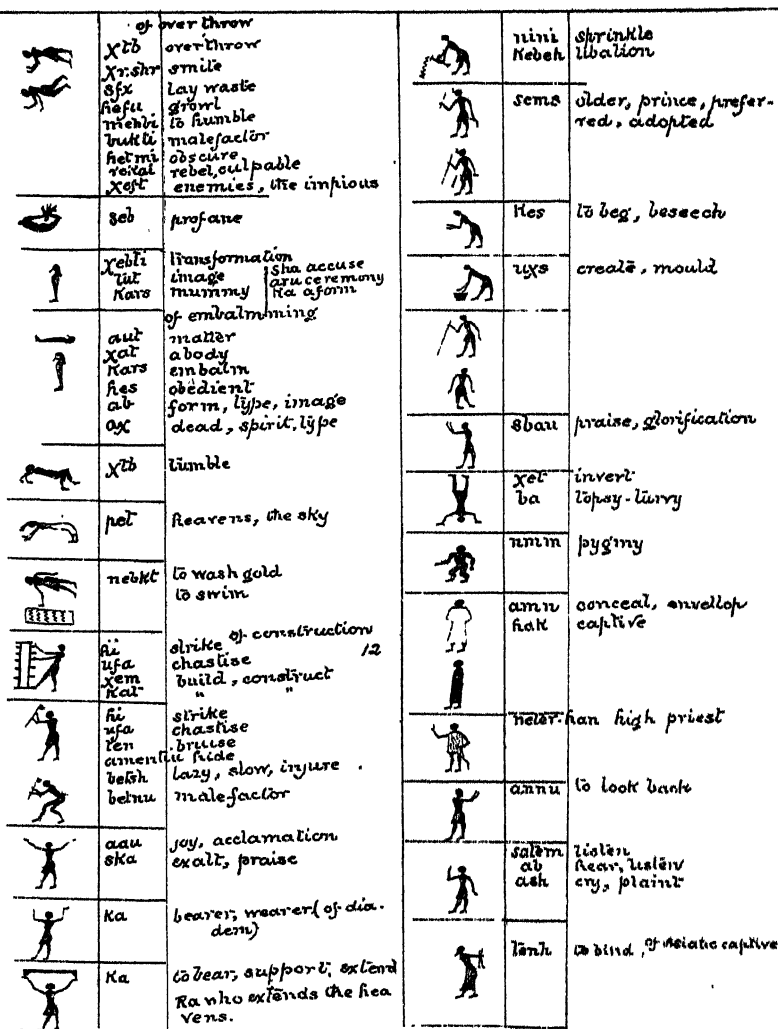 of over throw
χtb overthrow
χr.shr smite
sfx lay waste
hefu growl
menbi to humble
bukti malefactor
hetmi obscure
rebel, culpable
χeft enemies, the impious
seb profane
χebti transformation
tut image
Kars mummy
sha accuse
aru ceremony
Ka a form
of embalmming
aut matter
χat a body
Kars embalm
hes obedient
ab form, type, image
aχ dead, spirit, type
χtb tumble
pet heavens, the sky
nebkt to wash gold
to swim
of construction
hi strike
12
ufa chastise
χem build, construct
Kat " "
hi strike
ufa chastise
ten bruise
amentiu hide
betsh lazy, slow, injure .
betnu malefactor
aau joy, acclamation
ska exalt, praise
Ka bearer, wearer (of dia-
dem)
Ka to bear, support, extend
Ra who extends the hea
vens.
nini sprinkle
Kebeh libation
sems older, prince, prefer-
red, adopted
Kes to beg, beseech
uχs create, mould
sbau praise, glorification
χet invert
ba topsy-turvy
nmm pygmy
amn conceal, envellop
hak captive
neter-han high priest
annu to look back
satem listen
ab hear, listen
ash cry, plaint
tenh to bind, of Asiatic captive